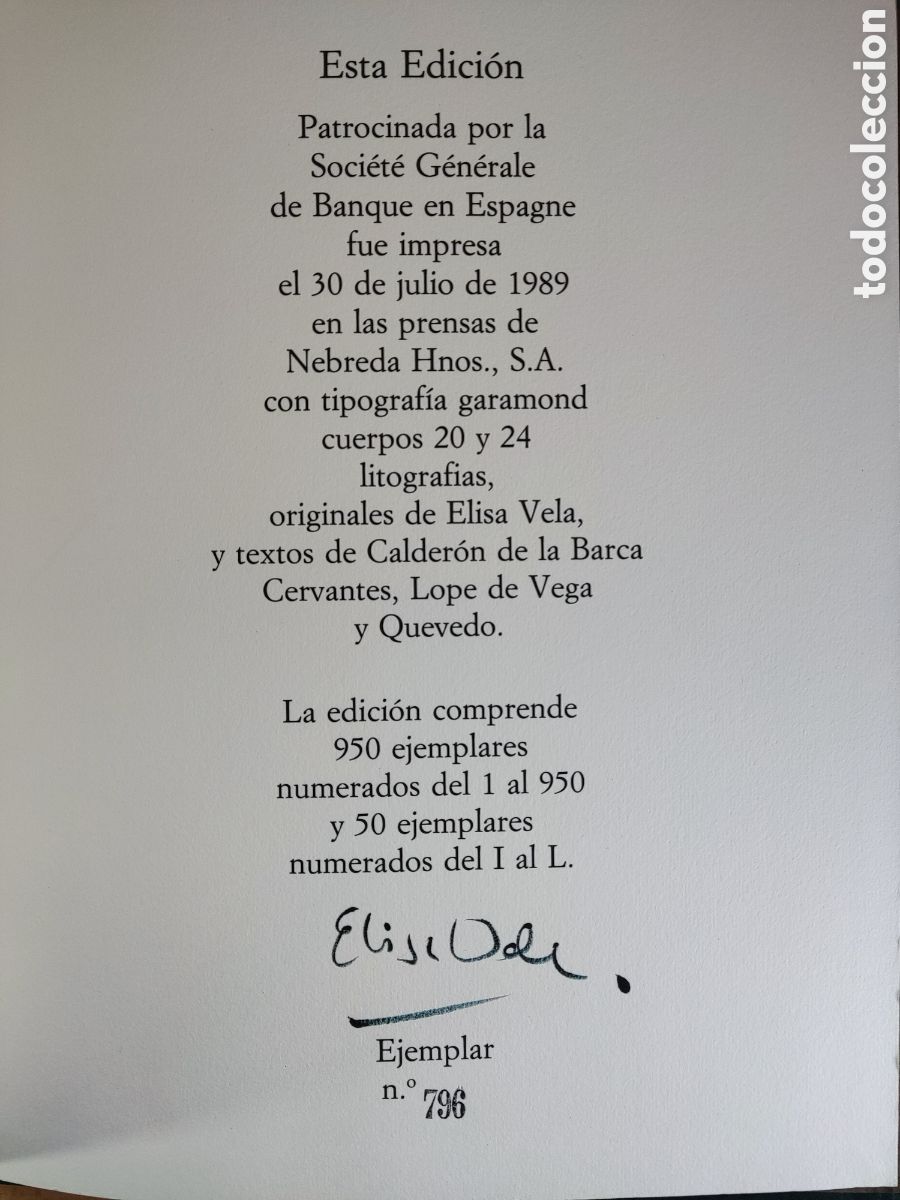 Esta Edición
Patrocinada por la
Société Générale
de Banque en Espagne
fue impresa
el 30 de julio de 1989
en las prensas de
Nebreda Hnos., S.A.
con tipografía garamond
cuerpos 20 y 24
litografias,
originales de Elisa Vela,
y textos de Calderón de la Barca
Cervantes, Lope de Vega
y Quevedo.
La edición comprende
950 ejemplares
numerados del 1 al 950
y 50 ejemplares
numerados del I al L.
Elisa Vela.
Ejemplar
n.º 796
todocoleccion